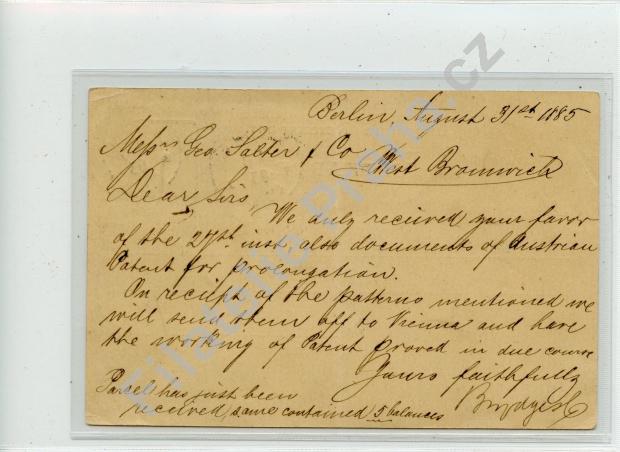 Berlin, August 31st 1885
Messrs Geo. Salter & Co
West Bromwich
Dear Sirs,
We duly received your favor
of the 27th inst, also documents of Austrian
Patent for prolongation.
On receipt of the patterns mentioned we
will send them off to Vienna and have
the working of Patent proved in due course
Yours faithfully
Parcel has just been
received, same contained 5 balances
Filatelie Praha.cz